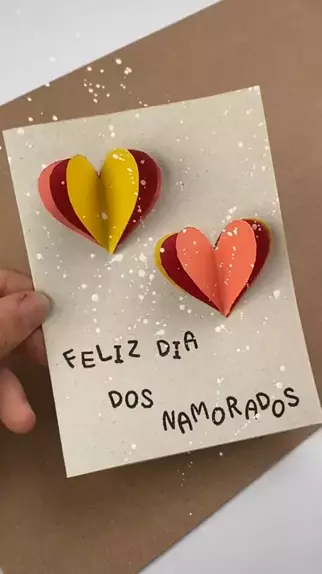 FELIZ DIA
DOS
NAMORADOS